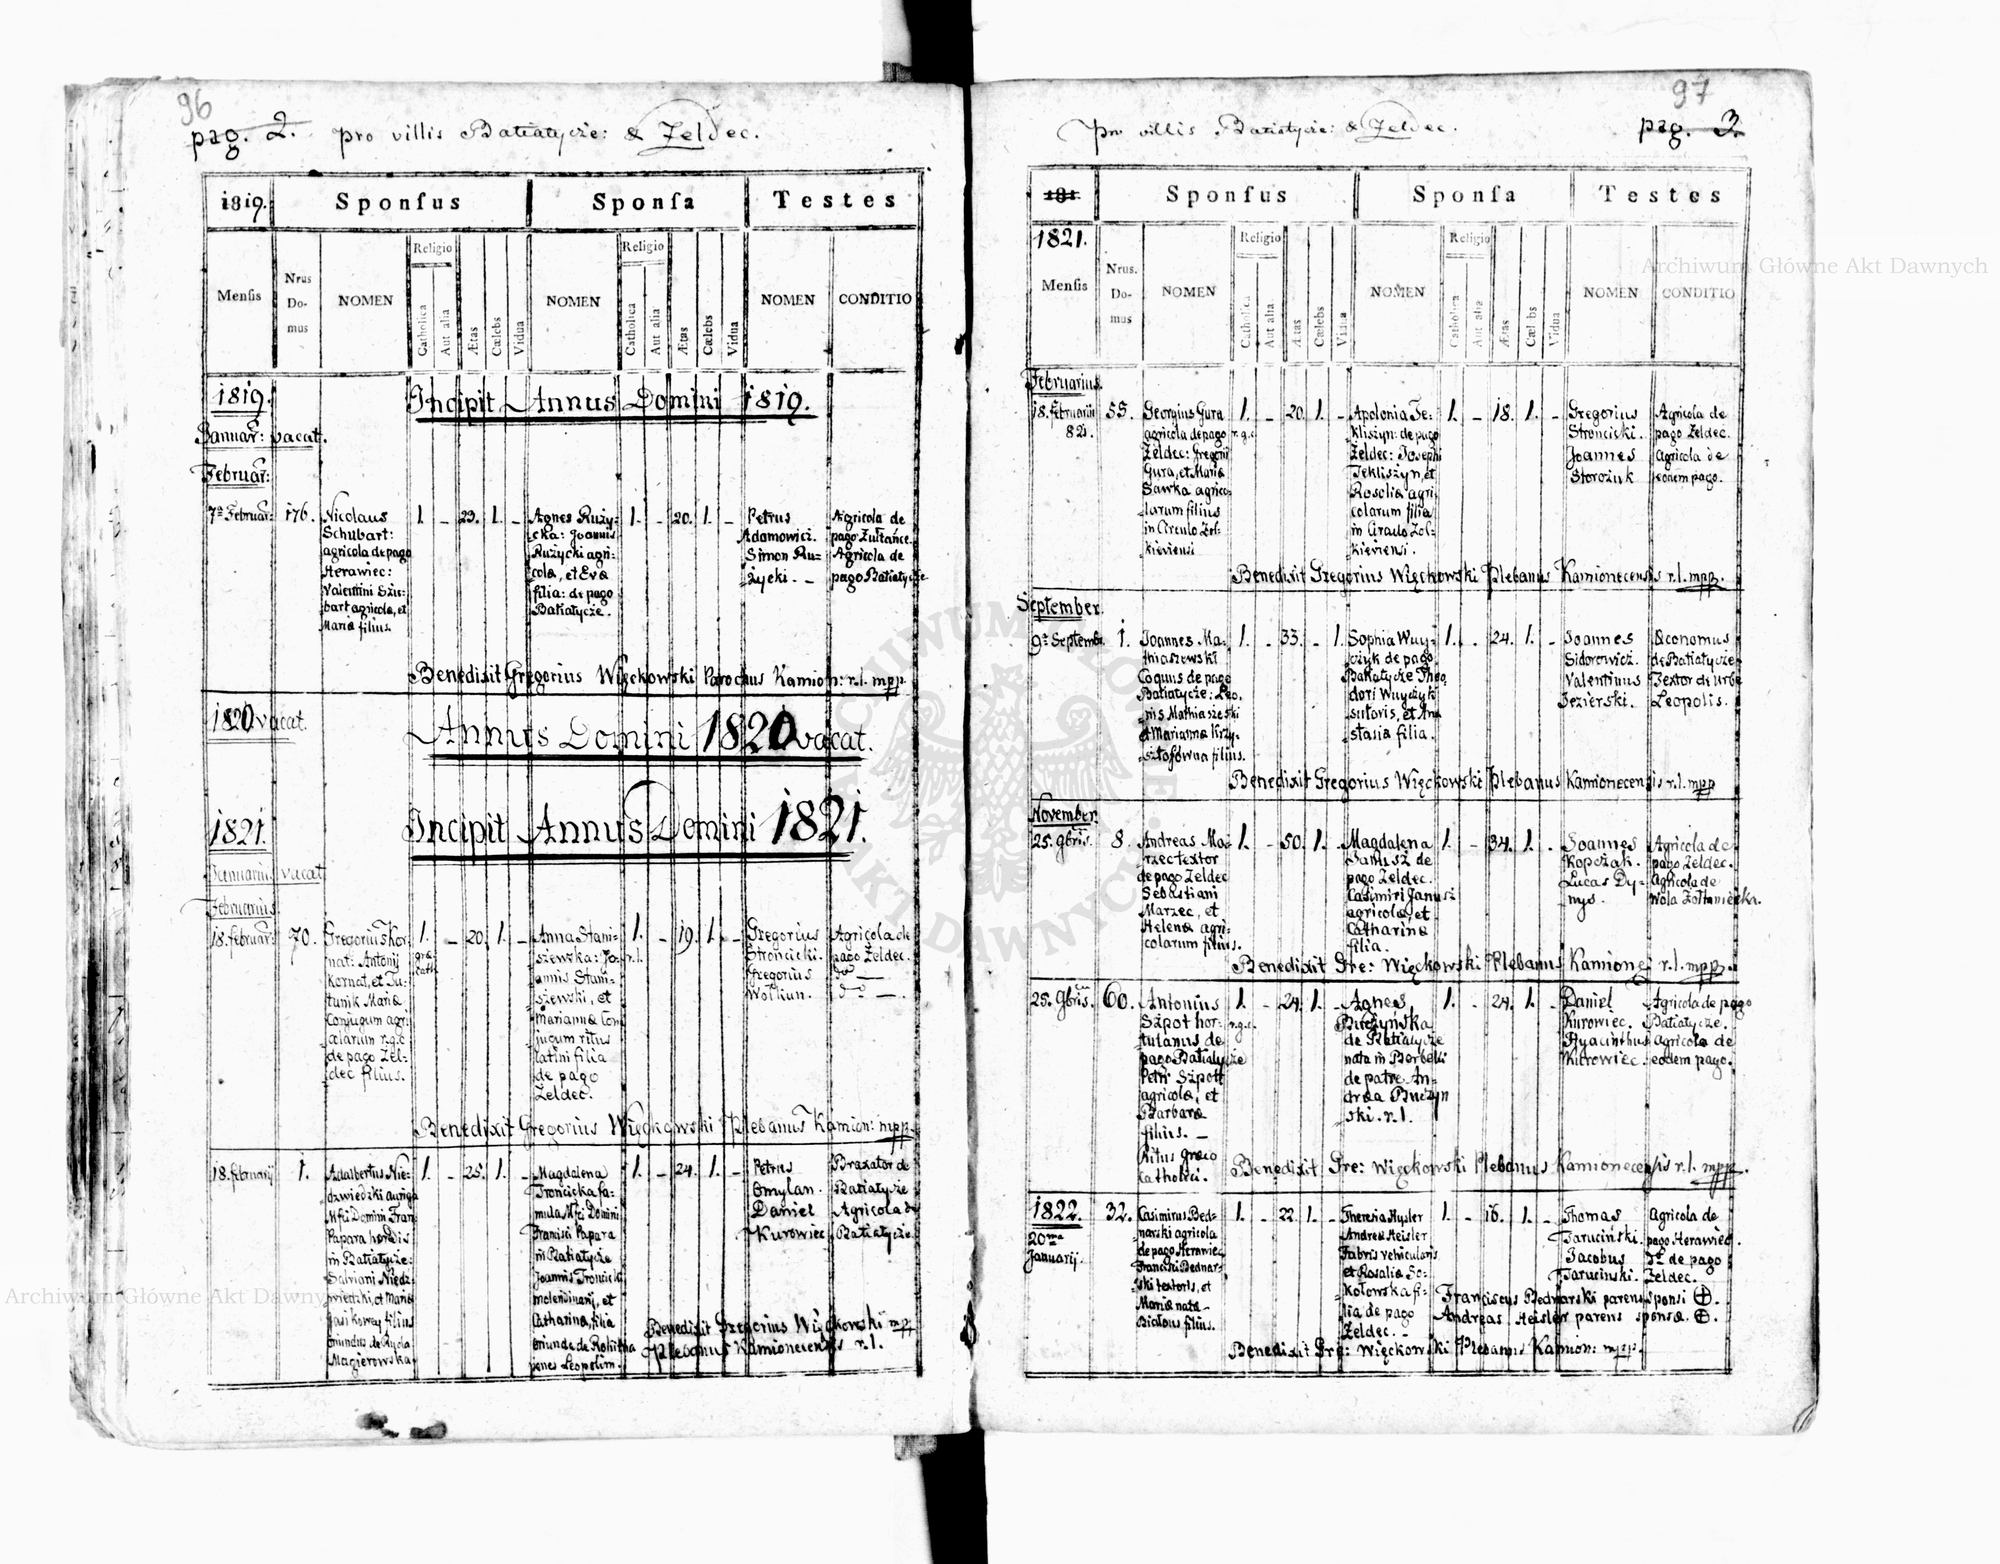 96
pag. 2. pro villis Batiatycze: & Żeldec.
1819. Sponſus Sponſa Testes
Menſis Nrus Do-mus NOMEN Religio Catholica Aut alia Ætas Cælebs Vidua NOMEN Religio Catholica Aut alia Ætas Cælebs Vidua NOMEN CONDITIO
1819. Incipit Annus Domini 1819.
Januar: vacat.
Februar:
7a Februar: 176.
Nicolaus
Schubart:
agricola de pago
Herawiec:
Valentini Szu-
bart agricolæ, et
Mariæ filius.
1. - 23. 1. -
Agnes Ruży-
cka: Joannis
Rużycki agri-
colæ, et Evæ
filia: de pago
Batiatycze.
1. - 20. 1. -
Petrus
Adamowicz.
Simon Ru-
życki. -
Agricola de
pago Żułtańce.
Agricola de
pago Batiatycze
Benedixit Gregorius Więckowski Parochus Kamion: r.l. mpp.
1820 vacat. Annus Domini 1820 vacat.
1821. Incipit Annus Domini 1821.
Januarius vacat
Februarius.
18. Februar: 70.
Gregorius Kor-
nat: Antonij
Kornat, et Ju-
tunik Mariæ
Conjugum agri-
colarum r.g.c
de pago Żel-
dec filius.
1. - 20. 1. -
græ.
cath.
Anna Stani-
szewska: Jo-
annis Stani-
szewski, et
Mariannæ Con-
jugum ritus
latini filia
de pago
Żeldec.
1. - 19. 1. -
r.l.
Gregorius
Strońcicki.
Gregorius
Wołkun.
Agricola de
pago Żeldec.
do —
do —.
Benedixit Gregorius Więckowski Plebanus Kamion: mpp.
18. februarij 1.
Adalbertus Nie-
dzwiedzki auriga
Mfci Domini Fran:
Papara hæredis
in Batiatycze:
Salviani Niedz-
wiedzki, et Mariæ
Jasikowey filius
oriundus de
Magierowska
1. - 25. 1. -
Magdalena
Trońcicka fa-
mula Mfci Domini
Francisci Papara
in Batiatycze
Joannis Trońcicki
molendinarij, et
Catharinæ, filia
oriunda de Rokitna
penes Leopolim.
1. - 24. 1. -
Petrus
Omylan.
Daniel
Kurowiec
Braxator de
Batiatycze
Agricola de
Batiatycze.
Benedixit Gregorius Więckowski mpp
Plebanus Kamionecensis r.l.
97
pro villis Batiatycze: & Żeldec. pag. 3.
181. Sponſus Sponſa Testes
1821.
Menſis Nrus. Do-mus NOMEN Religio Catholica Aut alia Ætas Cælebs Vidua NOMEN Religio Catholica Aut alia Ætas Cæl bs Vidua NOMEN CONDITIO
Februarius.
18. februarii 55.
821.
Georgius Gura
agricola de pago
Żeldec: Gregorii
Gura, et Mariæ
Sawka agrico-
larum filius
in Circulo Żoł-
kieviensi
1. - 20. 1. -
r.g.c.
Apolonia Te-
kliszyn: de pago
Żeldec: Josephi
Tekliszyn, et
Rosoliæ agri-
colarum filia
in Circulo Żoł-
kieviensi.
1. - 18. 1. -
Gregorius
Strońcicki.
Joannes
Storożuk
Agricola de
pago Żeldec.
Agricola de
eodem pago.
Benedixit Gregorius Więckowski Plebanus Kamionecensis r.l. mpp.
September.
9a Septemb: 1.
Joannes Ma-
thiaszewski
Coquus de pago
Batiatycze: Leo-
nis Mathiaszewski
et Mariannæ Krzy-
sztofówna filius.
1. - 33. - 1.
Sophia Wuy-
czyk de pago
Batiatycze Theo-
dori Wuyczyk
sutoris, et Ana-
stasiæ filia.
1. - 24. 1. -
Joannes
Sidorowicz.
Valentinus
Jezierski.
Œconomus
de Batiatycze
Textor de Urbe
Leopolis.
Benedixit Gregorius Więckowski Plebanus Kamionecensis r.l. mpp
November.
25. 9bris. 8.
Andreas Ma-
rzec textor
de pago Żeldec
Sebastiani
Marzec, et
Helenæ agri-
colarum filius.
1. - 50. 1. -
Magdalena
Janusz de
pago Żeldec.
Casimiri Janusz
agricolæ, et
Catharinæ
filia.
1. - 34. 1. -
Joannes
Kopczak.
Lucas Dy-
nys.
Agricola de
pago Żeldec.
Agricola de
Wola Żołtaniecka.
Benedixit Gre: Więckowski Plebanus Kamione r.l. mpp.
25. 9bris. 60.
Antonius
Szpot hor-
tulanus de
pago Batiatycze
Petri Szpott
agricolæ, et
Barbaræ
filius. —
Ritus græco
Catholici.
1. - 24. 1. -
r.g.c.
Agnes
Buczyńska
de Batiatycze
nata in Berbeki
de patre An-
drea Buczyn
ski. r.l.
1. - 24. 1. -
Daniel
Kurowiec.
Hyacinthus
Kurowiec.
Agricola de pago
Batiatycze.
Agricola de
eodem pago.
Benedixit Gre: Więckowski Plebanus Kamionecensis r.l. mpp.
1822. 32.
20ma
Januarij.
Casimirus Bed-
narski agricola
de pago Herawiec
Francisci Bednar-
ski textoris, et
Mariæ nata
Białous filius.
1. - 22. 1. -
Theresia Hysler
Andreæ Heisler
Fabris vehicularis
et Rosaliæ So-
kołowska fi-
lia de pago
Żeldec. -
1. - 16. 1. -
Thomas
Taruciński.
Jacobus
Taruciński.
Agricola de
pago Herawiec.
do de pago
Żeldec.
Franciscus Bednarski parens sponsi ⊕.
Andreas Heisler parens sponsæ. ⊕.
Benedixit Gre: Więckowski Plebanus Kamion: mpp.
Archiwum Główne Akt Dawnych
Archiwum Główne Akt Dawnych
ARCHIWUM GŁÓWNE AKT DAWNYCH